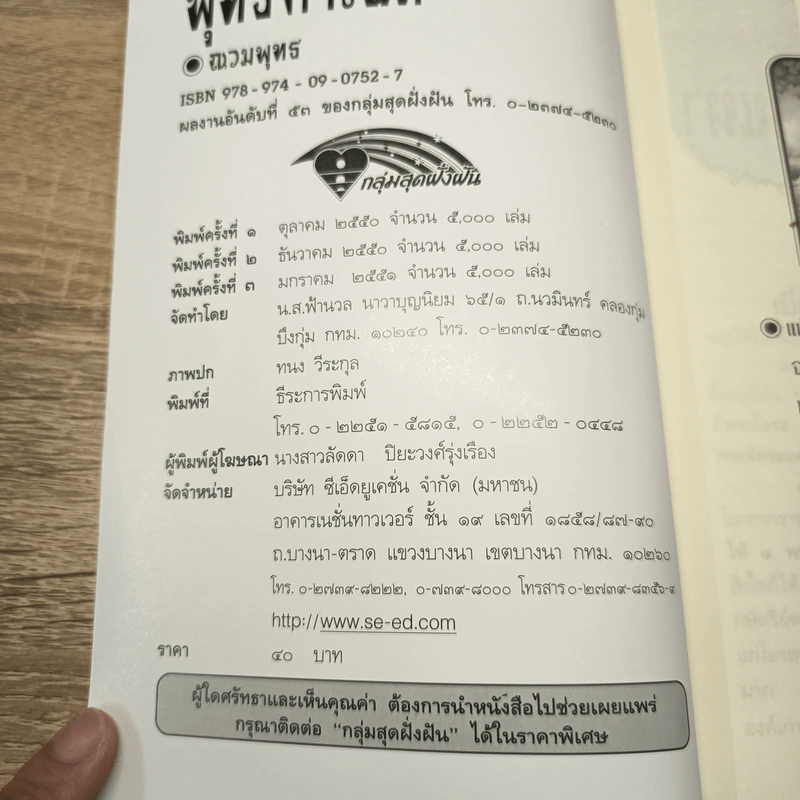 ● ณวมพุทธ
ISBN 978-974-09-0752-7
ผลงานอันดับที่ ๕๓ ของกลุ่มสุดฝั่งฝัน โทร. ๐-๒๓๗๔-๕๒๓๐
กลุ่มสุดฝั่งฝัน
พิมพ์ครั้งที่ ๑ ตุลาคม ๒๕๕๐ จำนวน ๕,๐๐๐ เล่ม
พิมพ์ครั้งที่ ๒ ธันวาคม ๒๕๕๐ จำนวน ๕,๐๐๐ เล่ม
พิมพ์ครั้งที่ ๓ มกราคม ๒๕๕๑ จำนวน ๕,๐๐๐ เล่ม
จัดทำโดย น.ส.ฟ้านวล นาวาบุญนิยม ๖๕/๑ ถ.นวมินทร์ คลองกุ่ม
บึงกุ่ม กทม. ๑๐๒๔๐ โทร. ๐-๒๓๗๔-๕๒๓๐
ภาพปก ทนง วีระกุล
พิมพ์ที่ ธีระการพิมพ์
โทร. ๐-๒๒๕๑-๕๘๑๕, ๐-๒๒๕๒-๐๔๔๘
ผู้พิมพ์ผู้โฆษณา นางสาวลัดดา ปิยะวงศ์รุ่งเรือง
จัดจำหน่าย บริษัท ซีเอ็ดยูเคชั่น จำกัด (มหาชน)
อาคารเนชั่นทาวเวอร์ ชั้น ๑๙ เลขที่ ๑๘๕๘/๘๗-๙๐
ถ.บางนา-ตราด แขวงบางนา เขตบางนา กทม. ๑๐๒๖๐
โทร. ๐-๒๗๓๙-๘๒๒๒, ๐-๗๓๙-๘๐๐๐ โทรสาร ๐-๒๗๓๙-๘๓๕๖-๙
http://www.se-ed.com
ราคา ๔๐ บาท
ผู้ใดศรัทธาและเห็นคุณค่า ต้องการนำหนังสือไปช่วยเผยแพร่
กรุณาติดต่อ "กลุ่มสุดฝั่งฝัน" ได้ในราคาพิเศษ